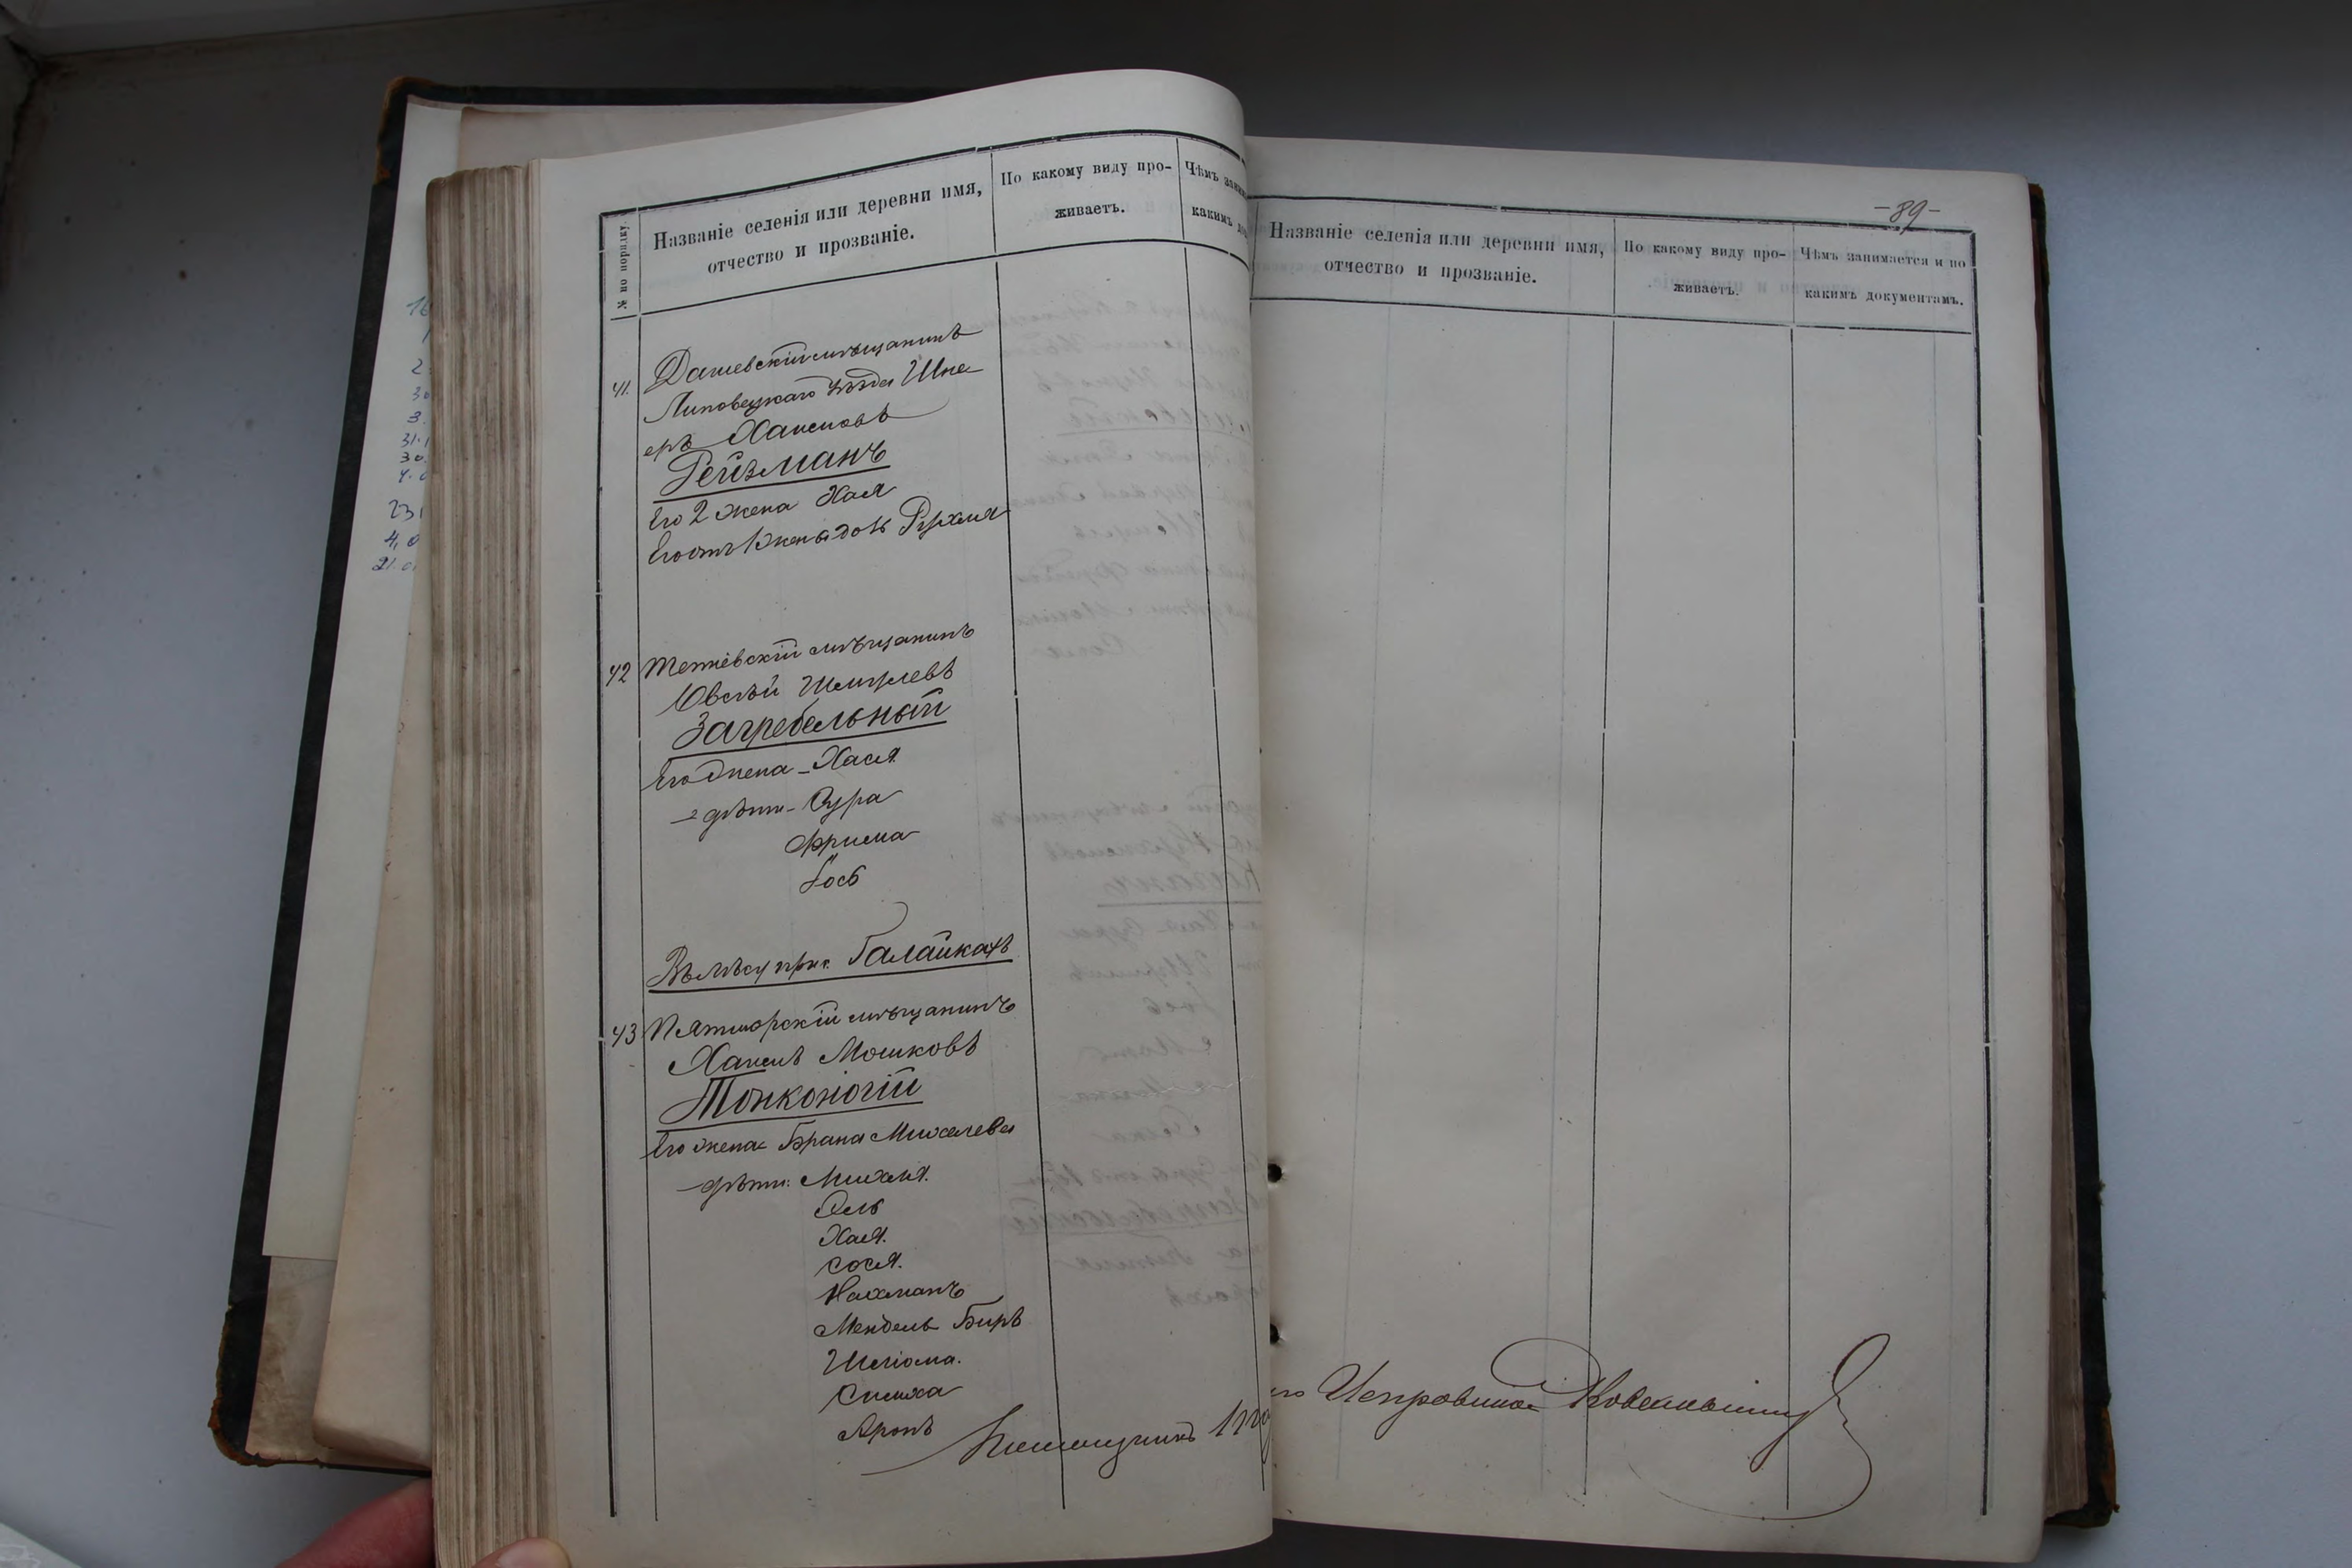 № по порядку
Названіе селенія или деревни имя,
отчество и прозваніе.
По какому виду про-
живаетъ.
Чѣмъ
какимъ
41. Дашевскій мѣщанинъ
Липовецкаго уѣзда Шне-
еръ Хаимовъ
Рейзманъ
Его 2 жена Хая
Его отъ 1 жены дочь Рухля
42 Тетіевскій мѣщанинъ
Овсѣй Шмулевъ
Загребельный
Его жена - Хася
- дѣти - Сура
Фрима
Іось
Въ мѣст. Галайкахъ
43 Пятигорскій мѣщанинъ
Хаимъ Мошковъ
Тонконогій
Его жена Брана
- дѣти: Михля.
Ель
Хая.
Сося.
Нахманъ
Мендель Биръ
Шліома.
Симха
Аронъ
Помощникъ
-89-
Названіе селенія или деревни имя,
отчество и прозваніе.
По какому виду про-
живаетъ.
Чѣмъ занимается и по
какимъ документамъ.
го Исправника
16
1
2
30
3.
31.1
30.
4.0
23 1
4,0
21.0